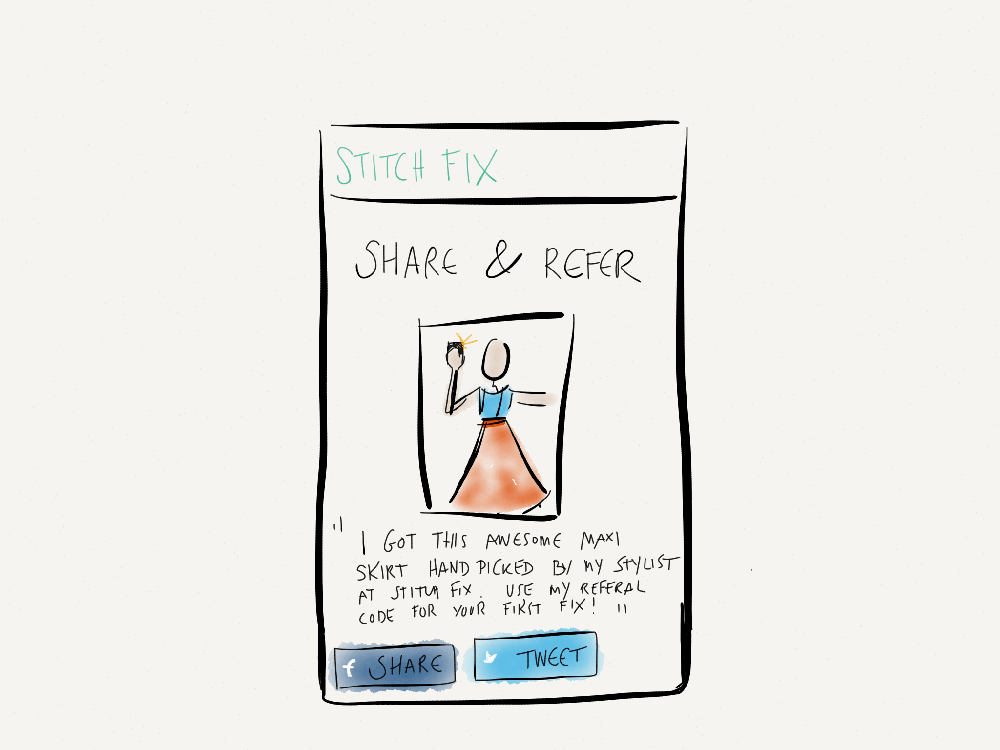 STITCH FIX
SHARE & REFER
" I GOT THIS AWESOME MAXI
SKIRT HAND PICKED BY MY STYLIST
AT STITCH FIX. USE MY REFERAL
CODE FOR YOUR FIRST FIX! "
f SHARE
TWEET